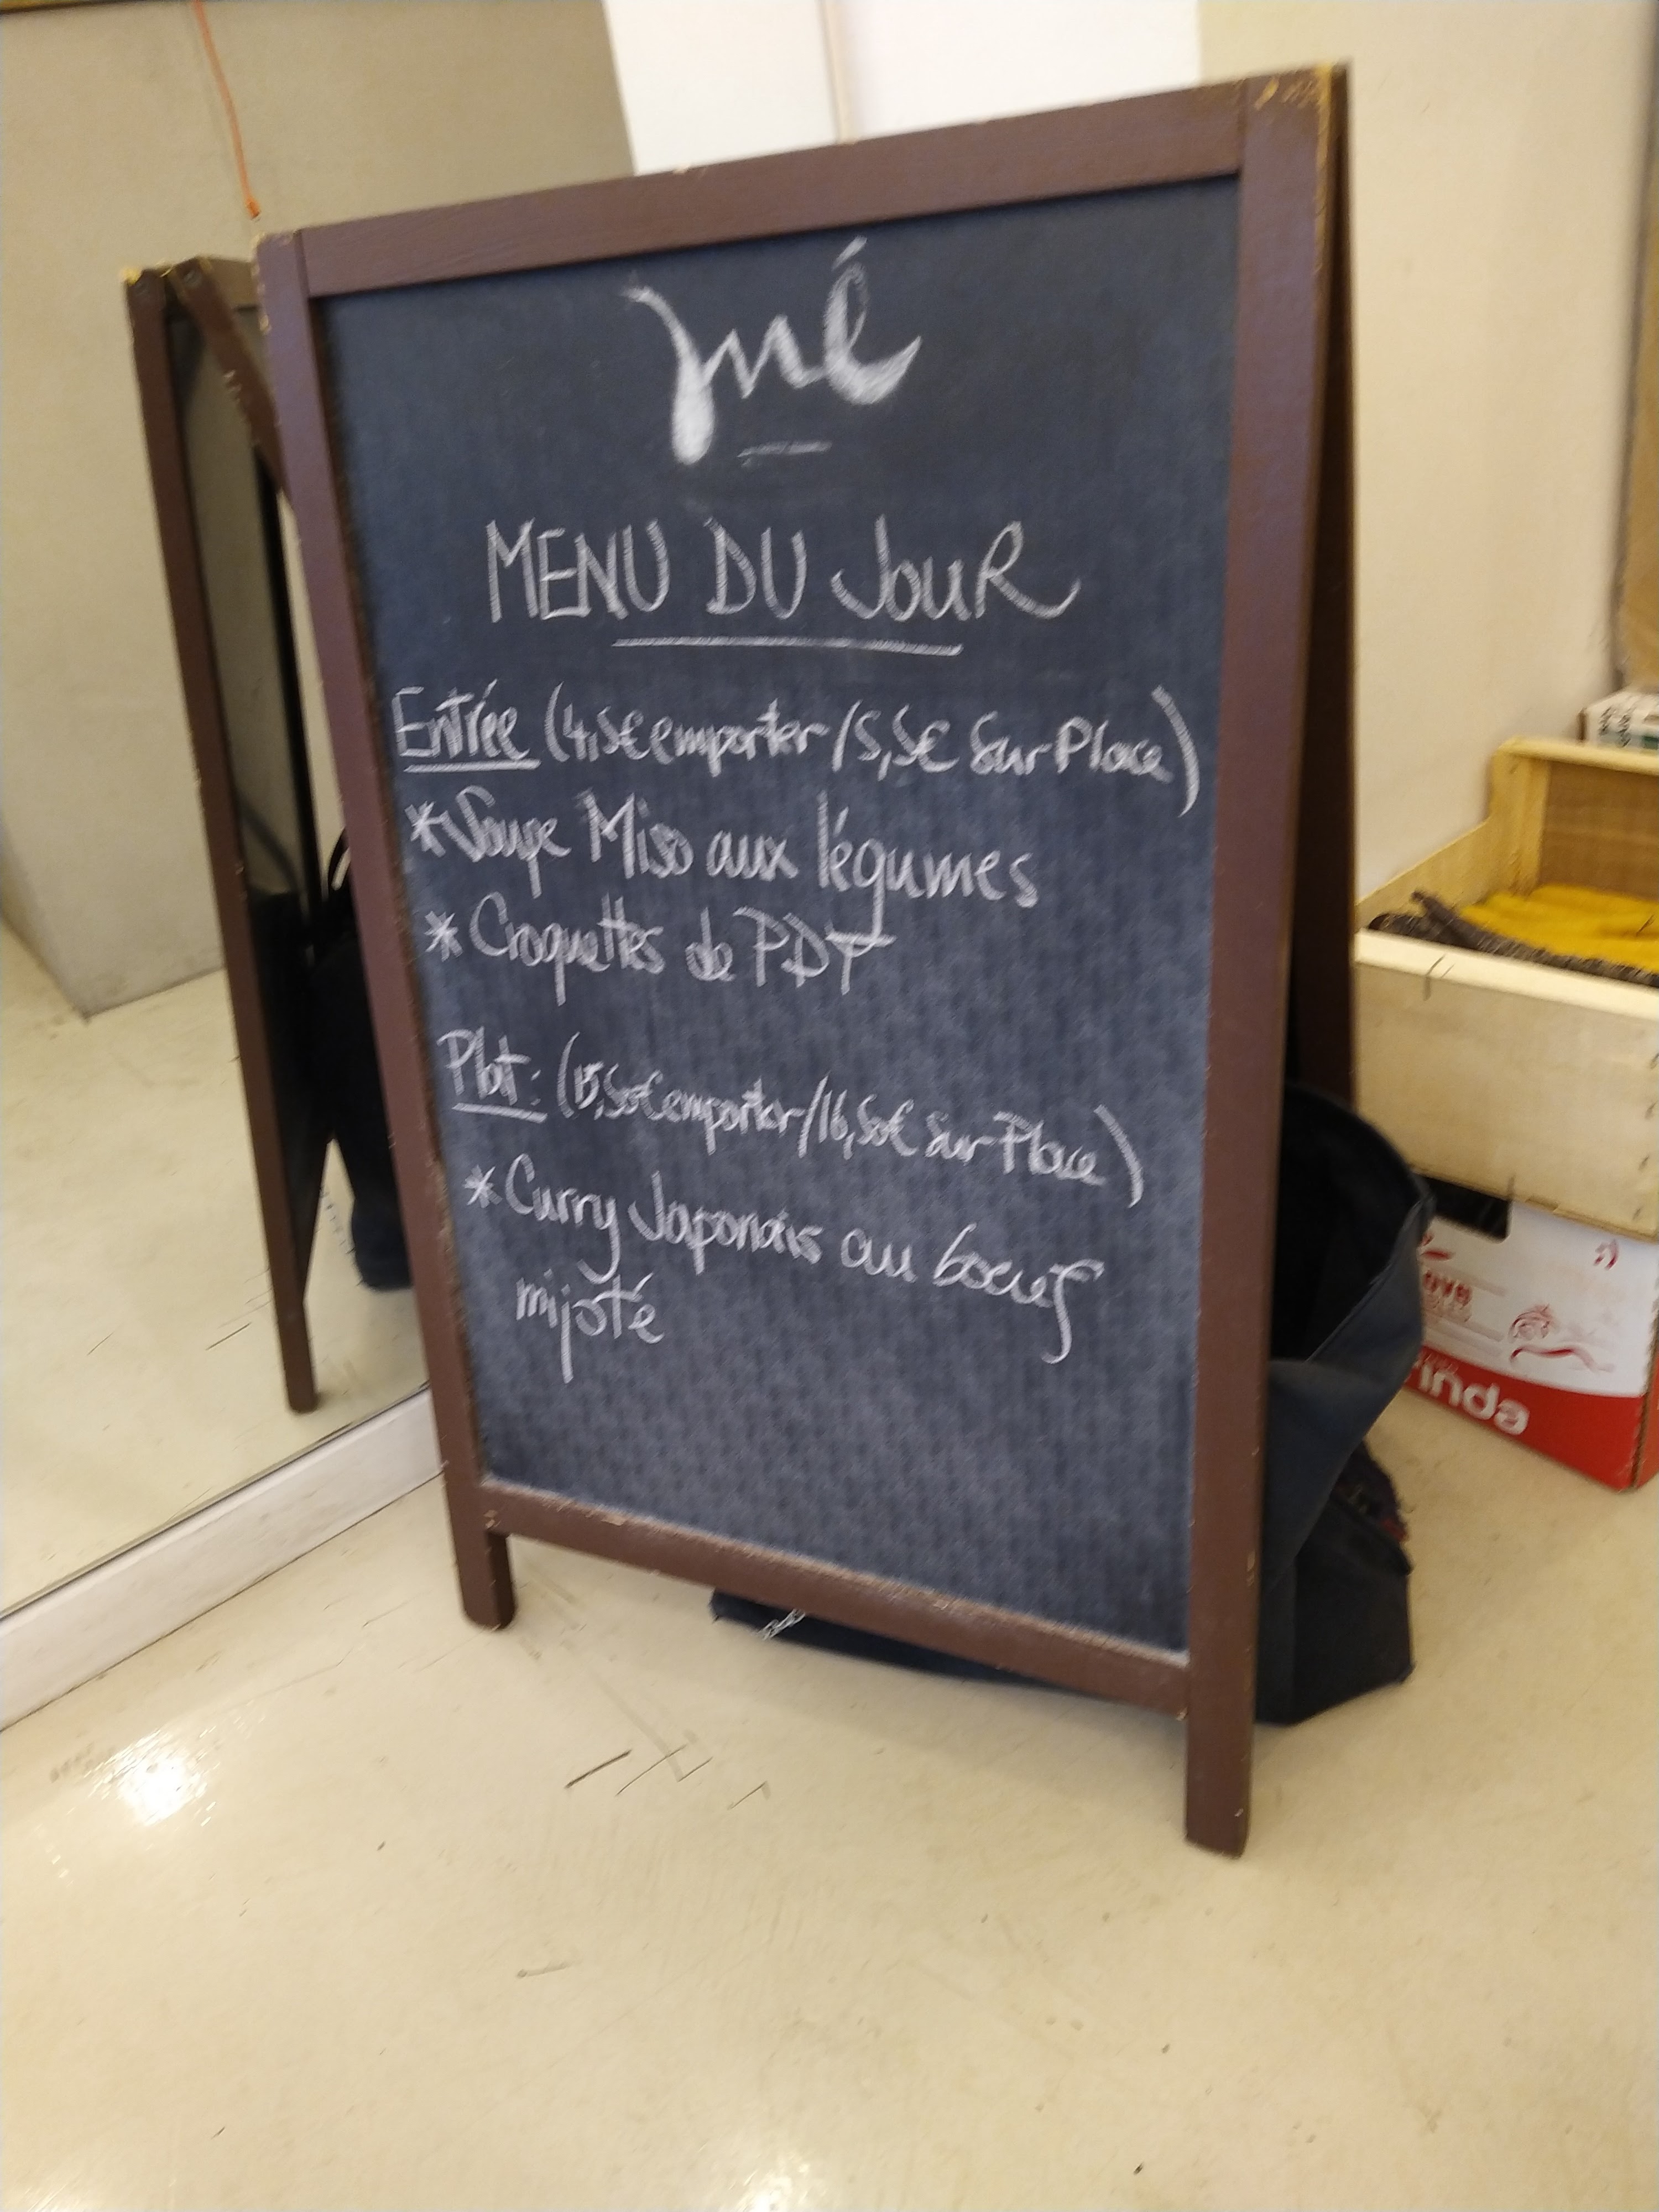 MENU DU JOUR
Entrée (4,5€ emporter / 5,5€ Sur Place)
*Soupe Miso aux légumes
* Croquettes de PDT
Plat: (15,50€ emporter/16,50€ Sur Place)
* Curry Japonais au boeuf
mijoté